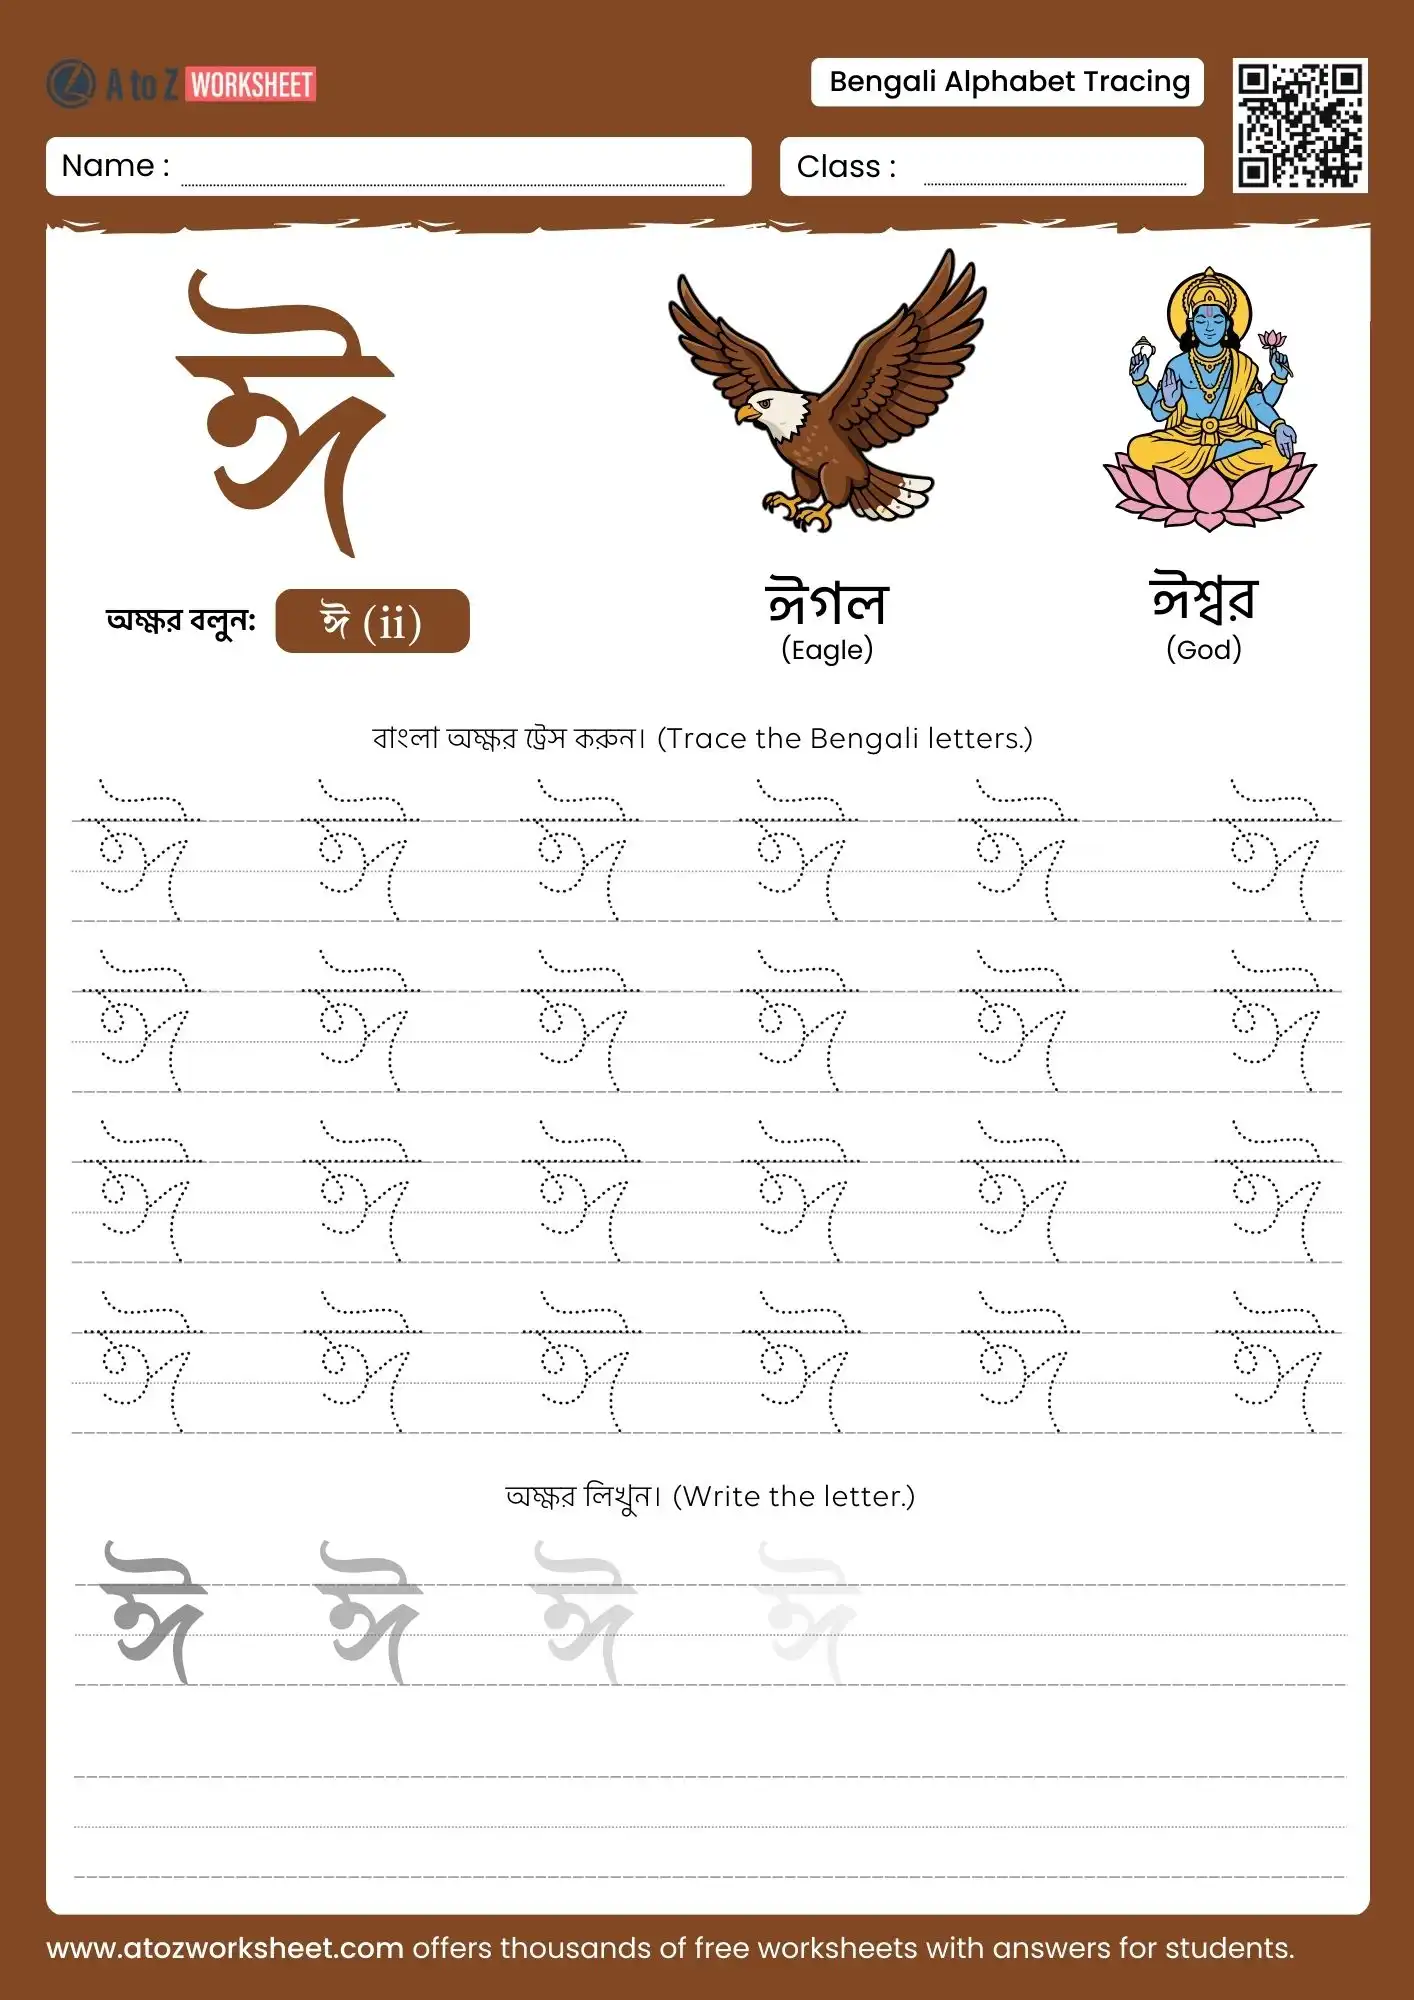 A to Z WORKSHEET
Bengali Alphabet Tracing
Name :
Class :
ঈ
অক্ষর বলুন: ঈ (ii)
ঈগল
(Eagle)
ঈশ্বর
(God)
বাংলা অক্ষর ট্রেস করুন। (Trace the Bengali letters.)
ঈ ঈ ঈ ঈ ঈ ঈ
ঈ ঈ ঈ ঈ ঈ ঈ
ঈ ঈ ঈ ঈ ঈ ঈ
ঈ ঈ ঈ ঈ ঈ ঈ
অক্ষর লিখুন। (Write the letter.)
ঈ ঈ ঈ ঈ
www.atozworksheet.com offers thousands of free worksheets with answers for students.